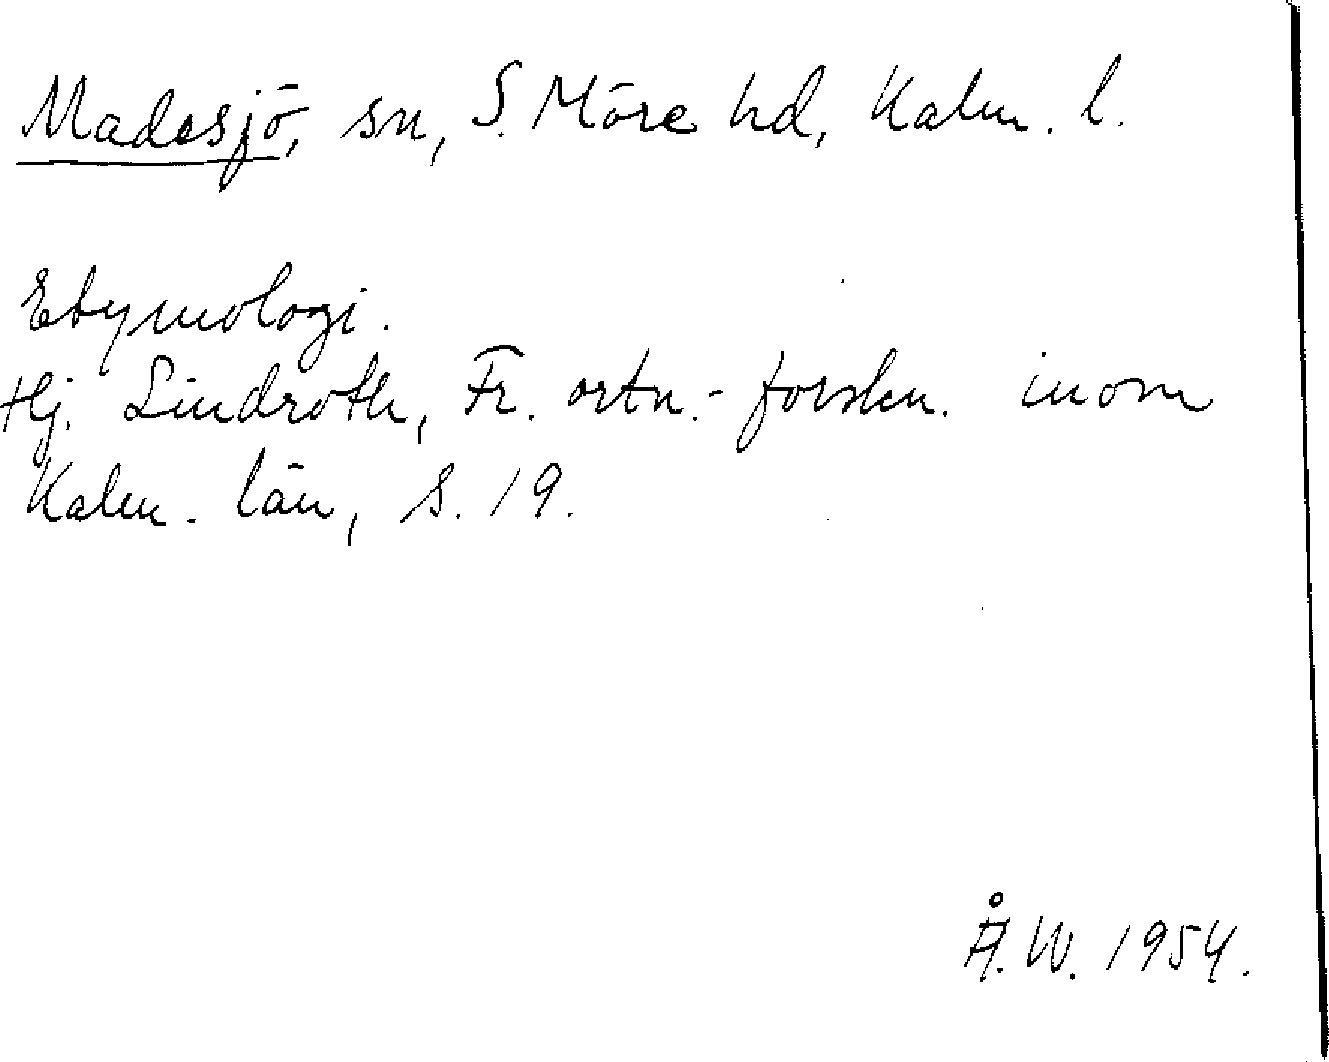 Madesjö, sn, S. Möre hd, Kalm. l.
Etymologi.
Hj. Lindroth, Fr. ortn.-forskn. inom
Kalm. län, s. 19.
Å.W. 1954.